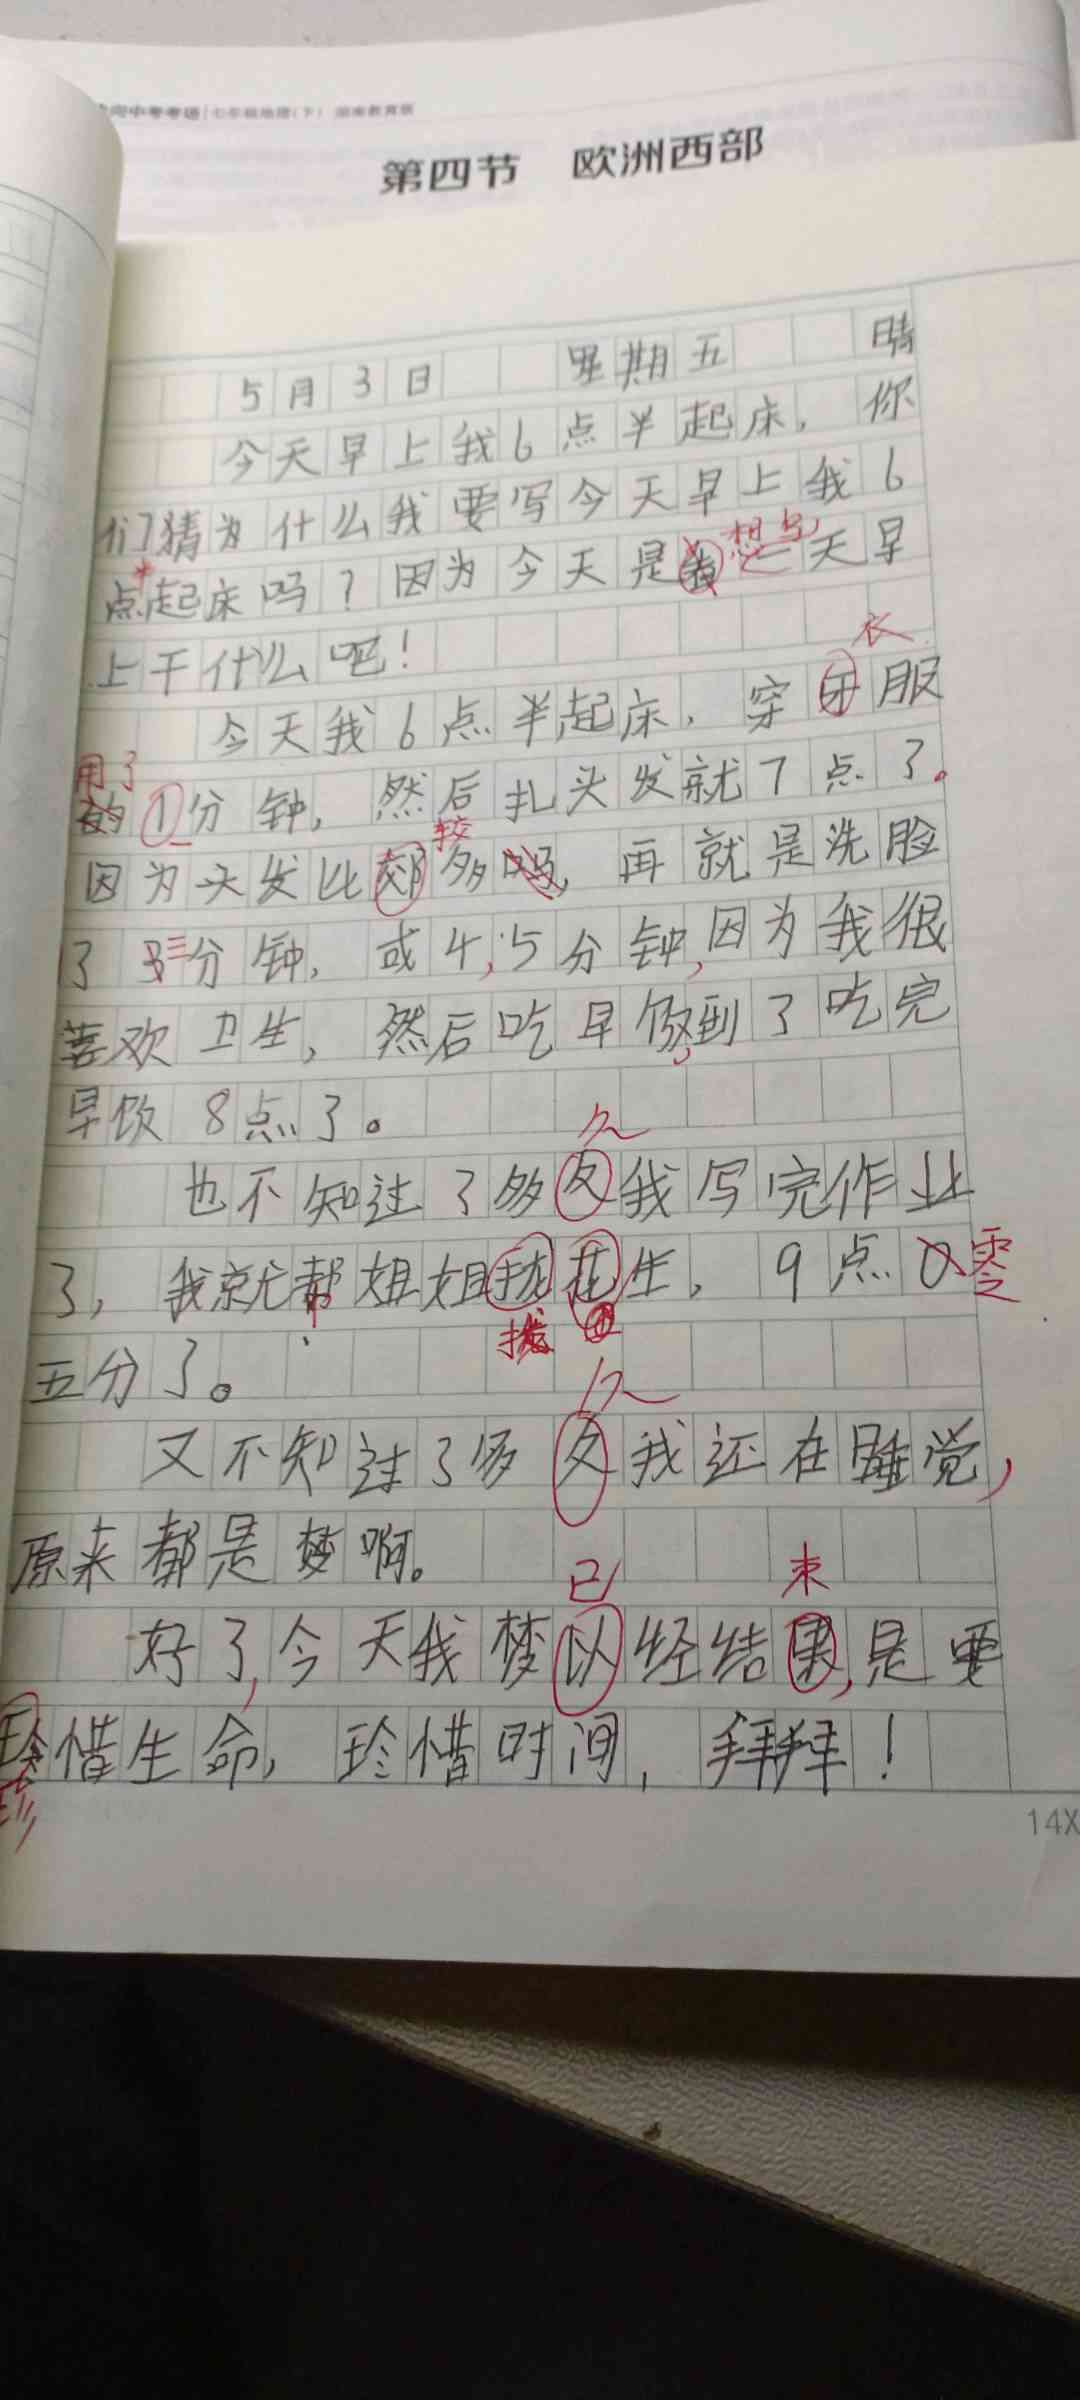 七年级地理(下) 湖南教育版
第四节 欧洲西部
5月3日 星期五 晴
今天早上我6点半起床，你
们猜为什么我要写今天早上我6
点起床吗？因为今天是 想写 一天早
上干什么吧！
衣
今天我6点半起床，穿 服
用了
的1分钟，然后扎头发就7点了。
较
因为头发比郊多吗，再就是洗脸
了 三分钟，或4,5分钟,因为我很
喜欢卫生，然后吃早饭,到了吃完
早饭8点了。
久
也不知过了多 我写完作业
了，我就帮姐姐 花生，9点0零
五分了。
久
又不知过了多 我还在睡觉，
原来都是梦啊。
已 束
好了,今天我梦以经结果,是要
珍惜生命，珍惜时间，拜拜！
14X